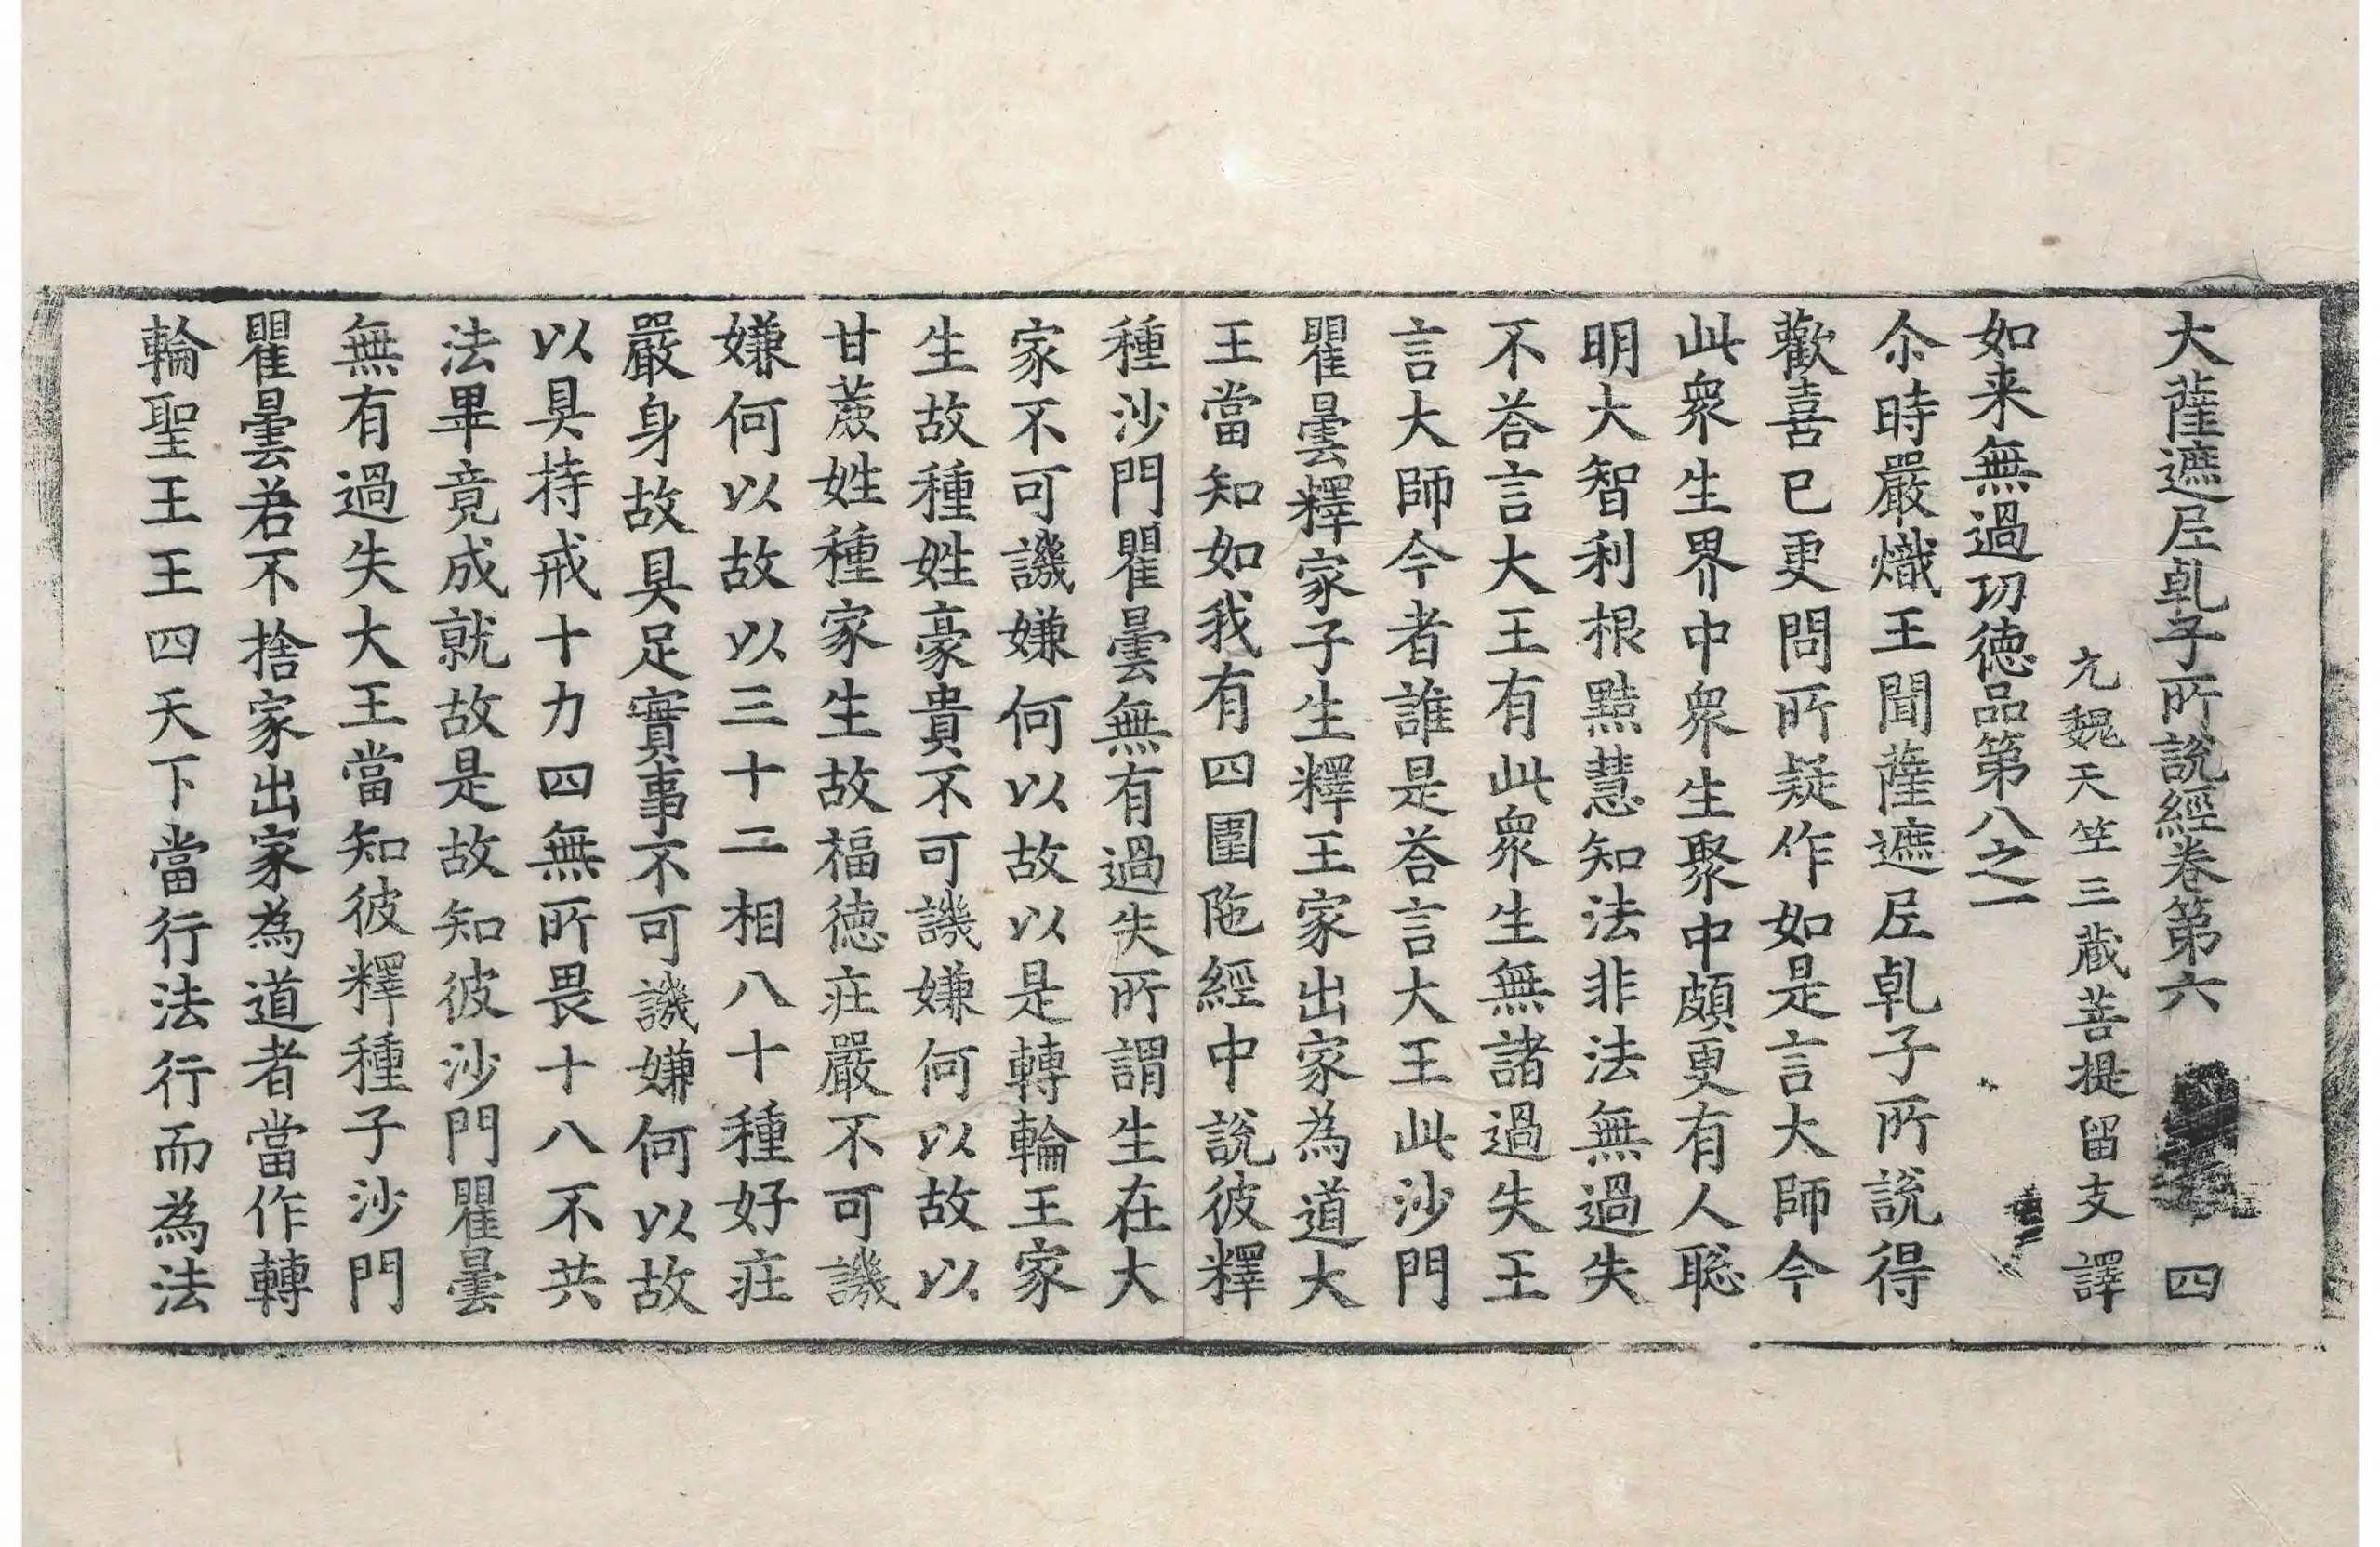 大薩遮𡰱乹子所說經卷第六 四
元魏天竺三藏菩提留支譯
如来無過功徳品第八之一
尒時嚴熾王聞薩遮𡰱乹子所說得
歡喜已更問所疑作如是言大師今
此衆生界中衆生聚中頗更有人聡
明大智利根黠慧知法非法無過失
不荅言大王有此衆生無諸過失王
言大師今者誰是荅言大王此沙門
瞿曇釋家子生釋王家出家為道大
王當知如我有四圍陁經中說彼釋
種沙門瞿曇無有過失所謂生在大
家不可譏嫌何以故以是轉輪王家
生故種姓豪貴不可譏嫌何以故以
甘蔗姓種家生故福徳莊嚴不可譏
嫌何以故以三十二相八十種好莊
嚴身故具足實事不可譏嫌何以故
以具持戒十力四無所畏十八不共
法畢竟成就故是故知彼沙門瞿曇
無有過失大王當知彼釋種子沙門
瞿曇若不捨家出家為道者當作轉
輪聖王王四天下當行法行而為法